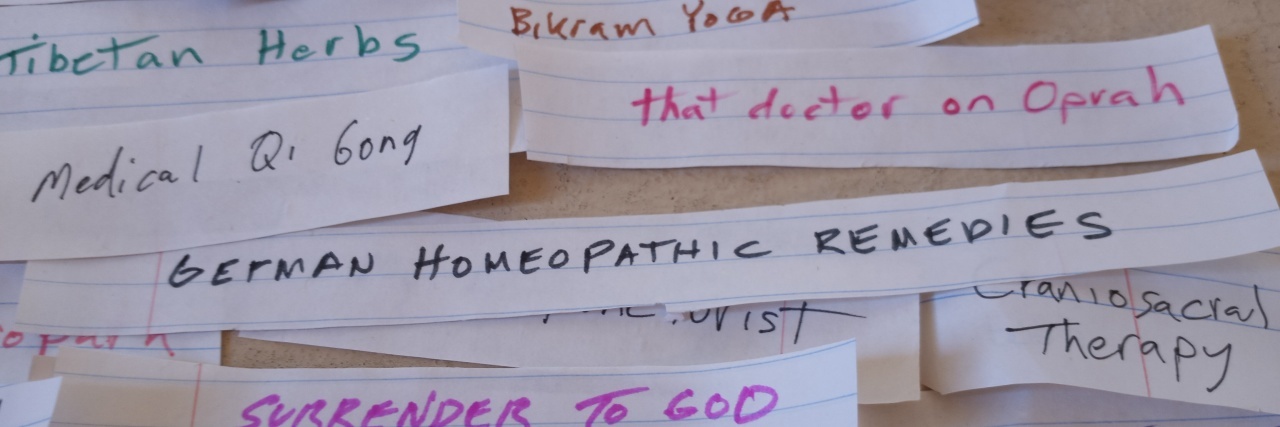 Bikram Yoga
Tibetan Herbs
that doctor on Oprah
Medical Qi Gong
GERMAN HOMEOPATHIC REMEDIES
Craniosacral
Therapy
SURRENDER TO GOD